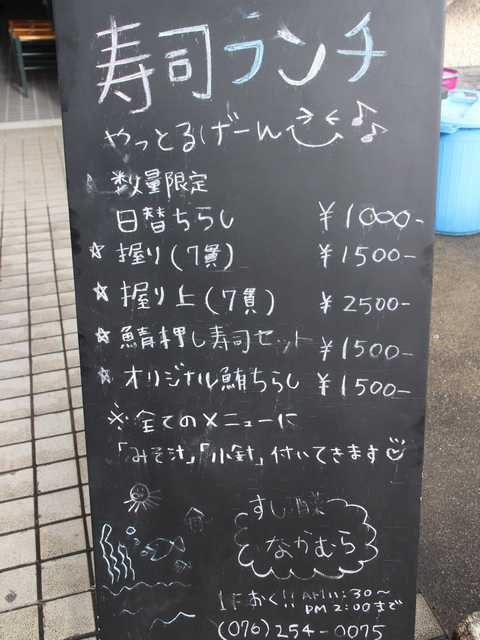 寿司ランチ
やっとるげーん
数量限定
日替ちらし ¥1000-
☆握り(7貫) ¥1500-
☆握り上(7貫) ¥2500-
☆鯖押し寿司セット ¥1500-
☆オリジナル鮪ちらし ¥1500-
※全てのメニューに
「みそ汁」「小鉢」付いてきます
すし
なかむら
おく!! AM11:30〜
PM2:00まで
(076)254-0075